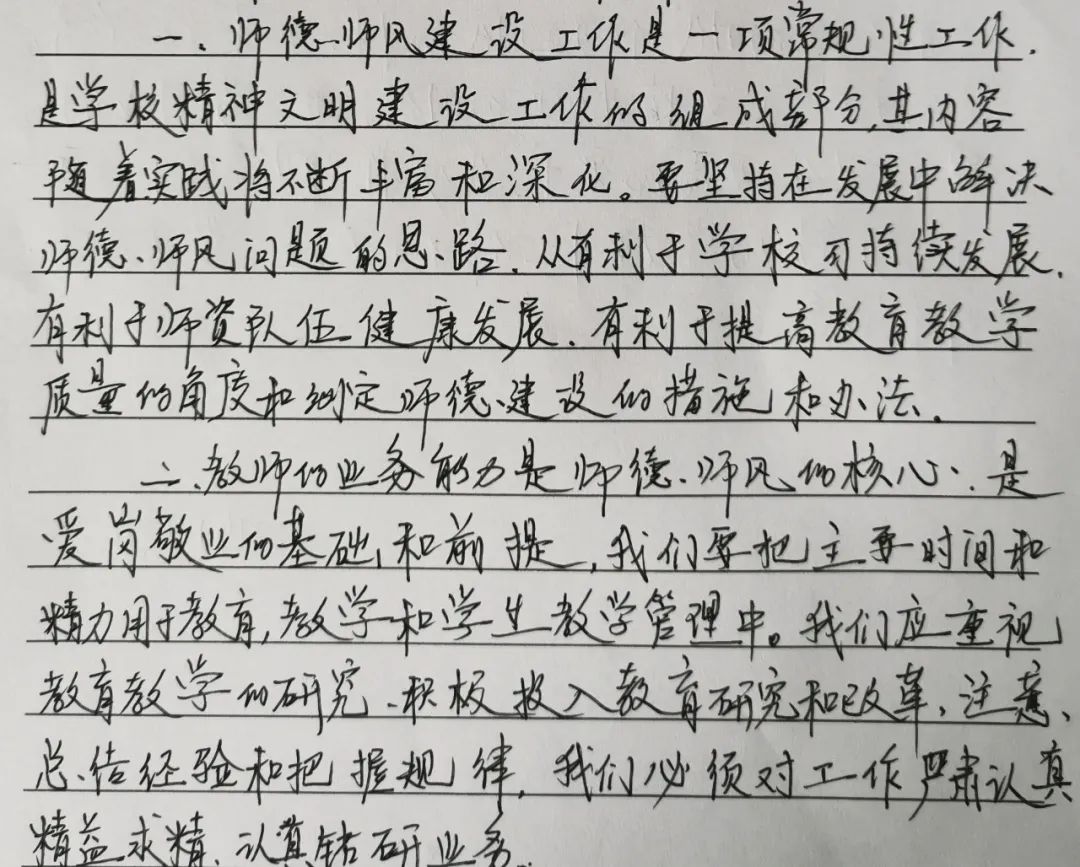 一、师德师风建设工作是一项常规性工作,
是学校精神文明建设工作的组成部分,其内容
随着实践将不断丰富和深化。要坚持在发展中解决
师德、师风问题的思路,从有利于学校可持续发展,
有利于师资队伍健康发展,有利于提高教育教学
质量的角度和制定师德建设的措施和办法。
二、教师的业务能力是师德、师风的核心,是
爱岗敬业的基础和前提,我们要把主要时间和
精力用于教育,教学和学生教学管理中。我们应重视
教育教学的研究、积极投入教育研究和改革,注意、
总结经验和把握规律,我们必须对工作严肃认真
精益求精,认真钻研业务。